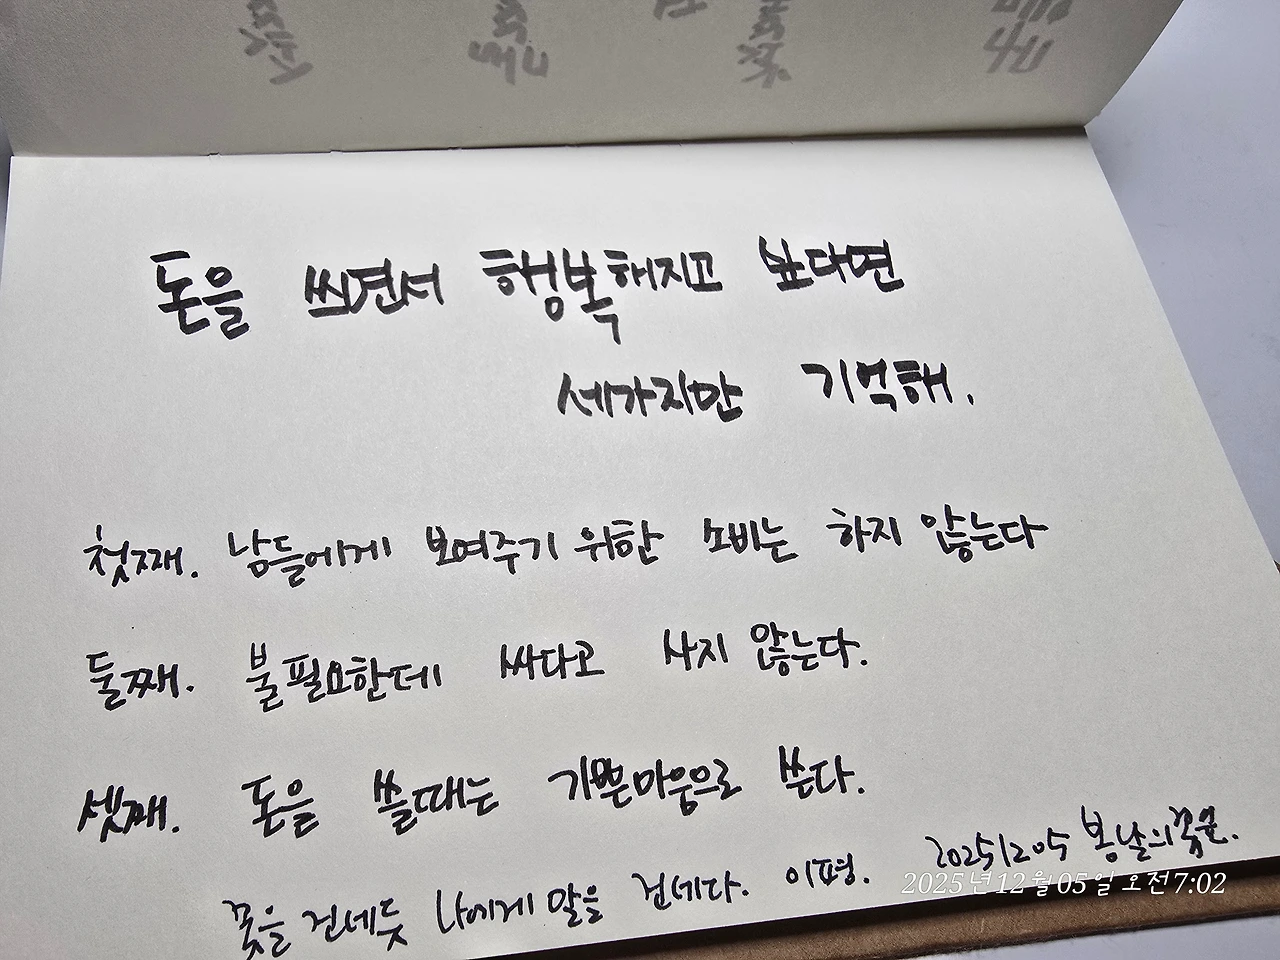 돈을 쓰면서 행복해지고 싶다면
세가지만 기억해.
첫째. 남들에게 보여주기 위한 소비는 하지 않는다
둘째. 불필요한데 싸다고 사지 않는다.
셋째. 돈을 쓸때는 기쁜마음으로 쓴다.
꽃을 건네듯 나에게 말을 건네다. 이평. 20251205 봄날의꽃은.
2025년 12월 05일 오전 7:02